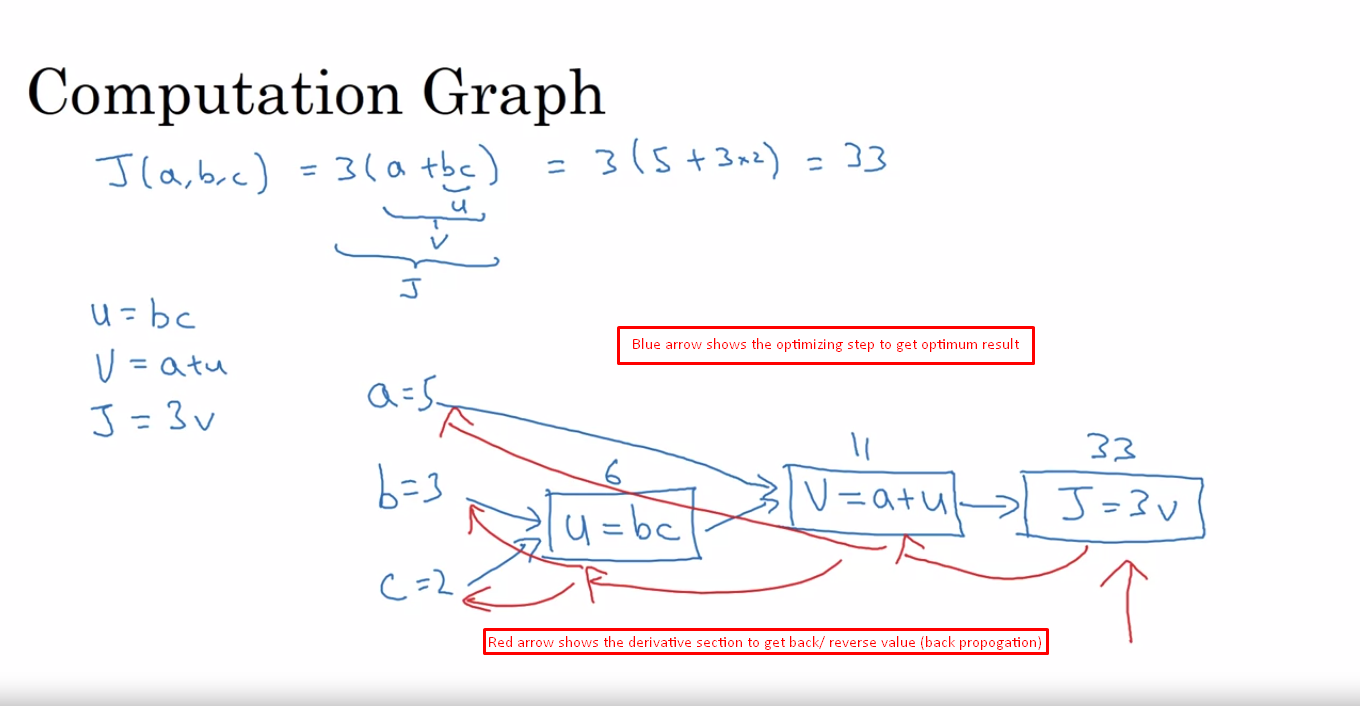 Computation Graph
J(a,b,c) = 3(a+bc) = 3(5+3x2) = 33
u
V
J
u = bc
V = a+u
J = 3v
Blue arrow shows the optimizing step to get optimum result
a=5
11
33
b=3
6
V=a+u
J=3v
u=bc
c=2
Red arrow shows the derivative section to get back/ reverse value (back propogation)